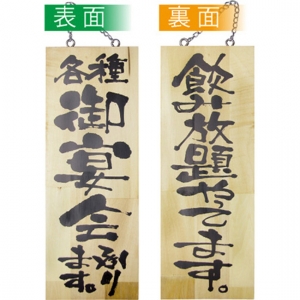 表面
各種
御宴会承り
ます。
裏面
飲み放題やってます。